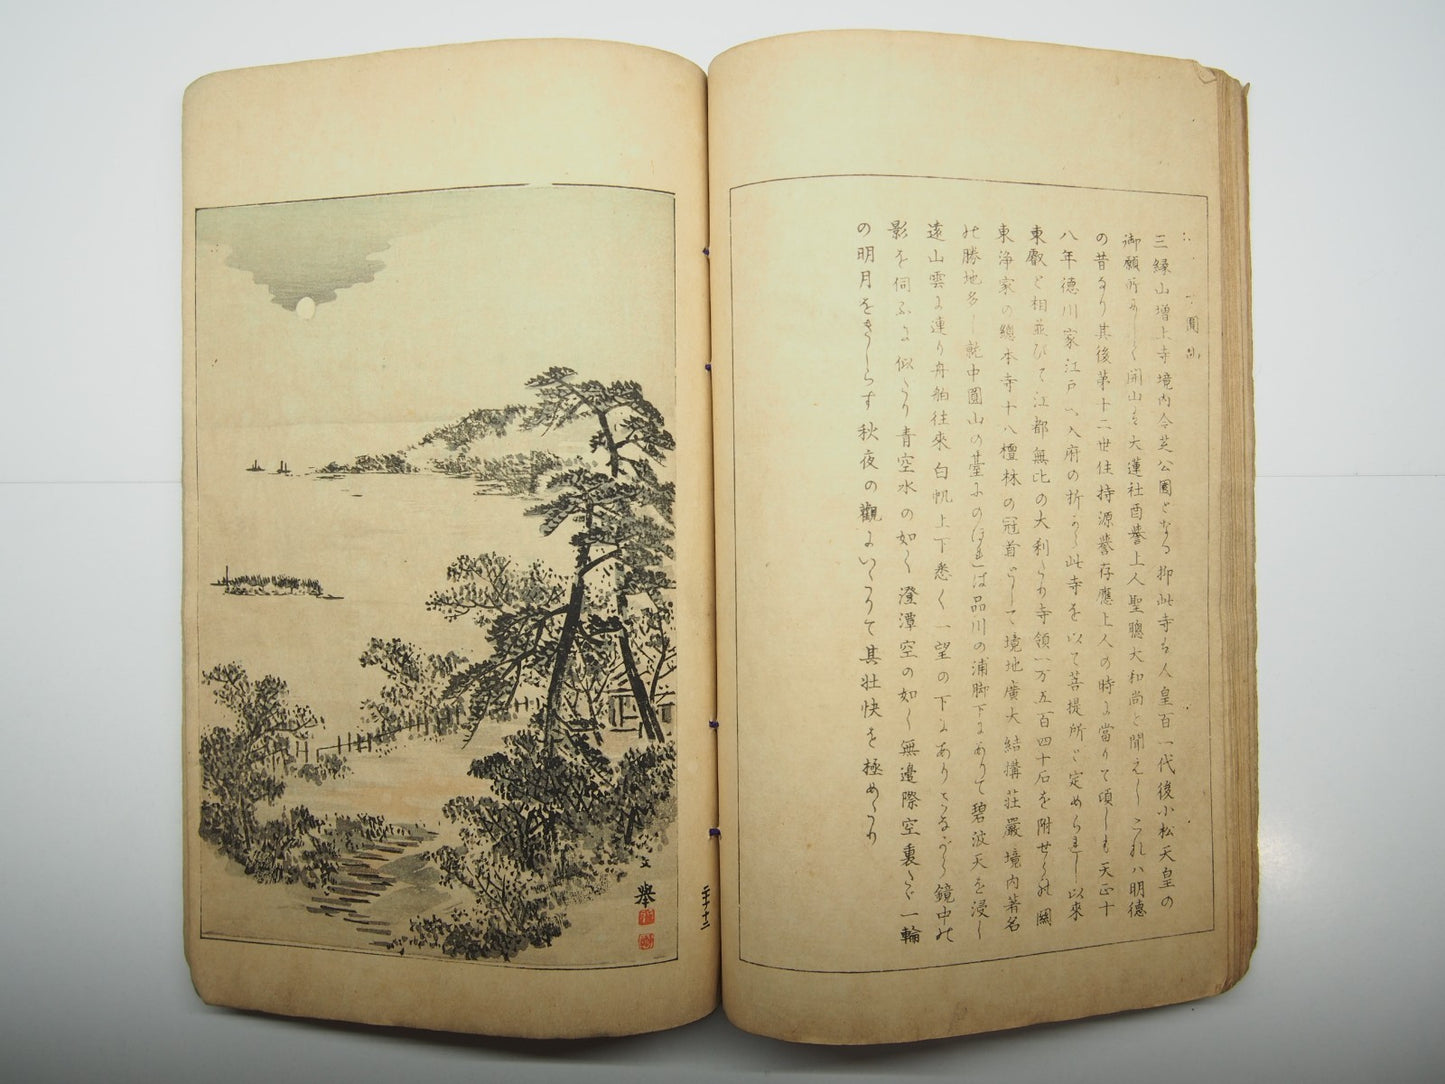 圓山
三縁山増上寺境内今芝公園となる抑此寺ハ人皇百一代後小松天皇の
御願所にして開山ハ大蓮社酉譽上人聖聰大和尚と聞えしこれハ明徳
の昔なり其後第十二世住持源譽存應上人の時に當りて頃しも天正十
八年徳川家江戸へ入府の折から此寺を以て菩提所と定められし以來
東叡と相並びて江都無比の大刹たり寺領一万五百四十石を附せられ關
東浄家の總本寺十八檀林の冠首として境地廣大結構荘嚴境内著名
の勝地多し就中圓山の臺にのぼれば品川の浦脚下にありて碧波天を浸し
遠山雲に連り舟舶往來白帆上下悉く一望の下にありさながら鏡中の
影を伺ふに似たり青空水の如く澄潭空の如く無邊際空裏たゞ一輪
の明月をきらす秋夜の觀にいたりて其壮快を極めたり
文擧